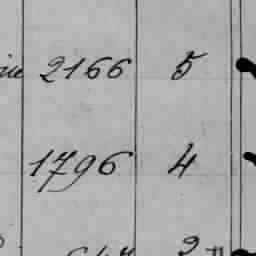 2166 5
1796 4